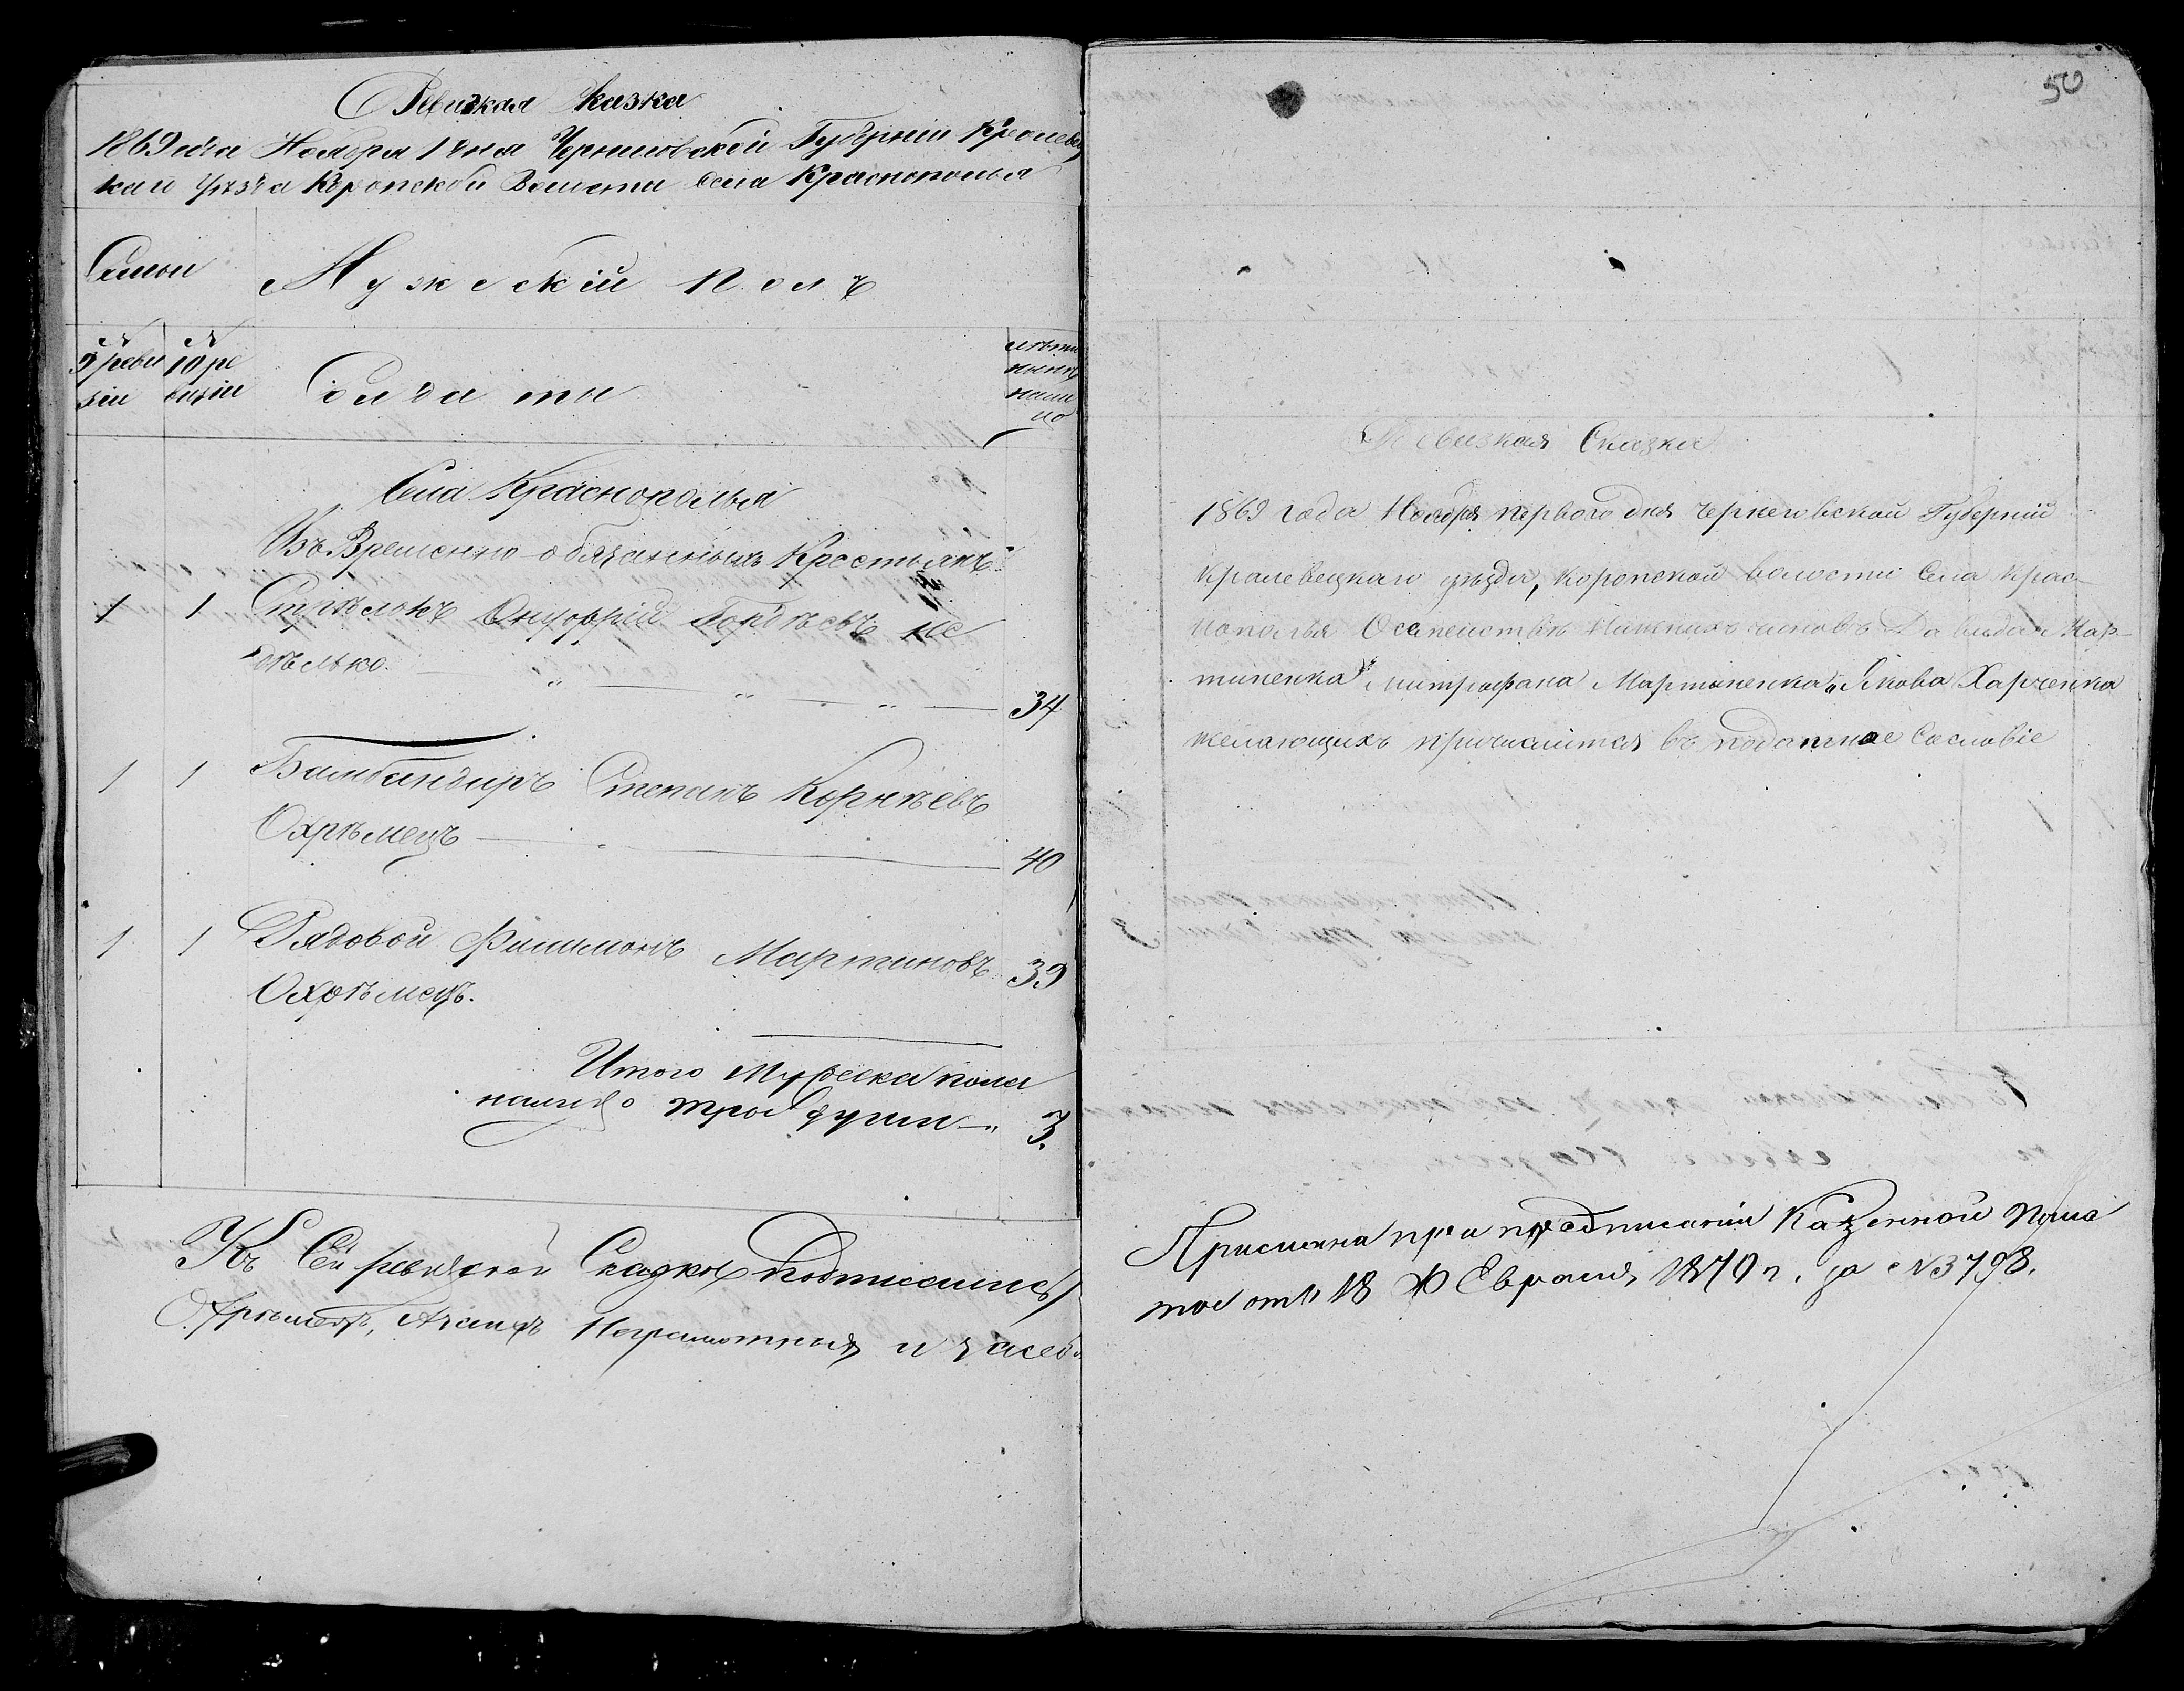 Ревизкая Казка
1869 года Ноября 1 дня Черниговской Губернии Кролевец
каго уезда Коропской Волости Села Краснополья
Семьи
Мужескій Полъ
9 реви
зіи
10 ре
визіи
Солдаты
лѣта
нынѣ
нали
цо
Села Краснополья
Изъ Временно-обязанныхъ Крестьянъ
1 1 Стрѣлокъ Онуфрій Гордѣевъ
34
1 1 Бамбандиръ Степанъ Корнѣевъ
Охрѣмецъ 40
1 1 Рядовой Филимонъ Мартиновъ 39
Охрѣмецъ.
Итого Мужеска пола
налицо трое душъ 3.
Къ Сей ревизской Сказкѣ подписались
Охрѣмецъ, Неграмотныя и засебя
50
Ревизкая Сказка
1869 года Ноября первого дня черниговской Губерніи
Кролевецкаго уѣзда, коропской волости Села Крас-
нополья О семействѣ Нижнихъ чиновъ Давыда Мар-
тиненка, митрофана Мартиненка и Якова Харченка
желающихъ причислится въ податное Сословіе
Прислана при предписаніи Казенной Пала
ты отъ 18 Февраля 1870 г. за №3798.